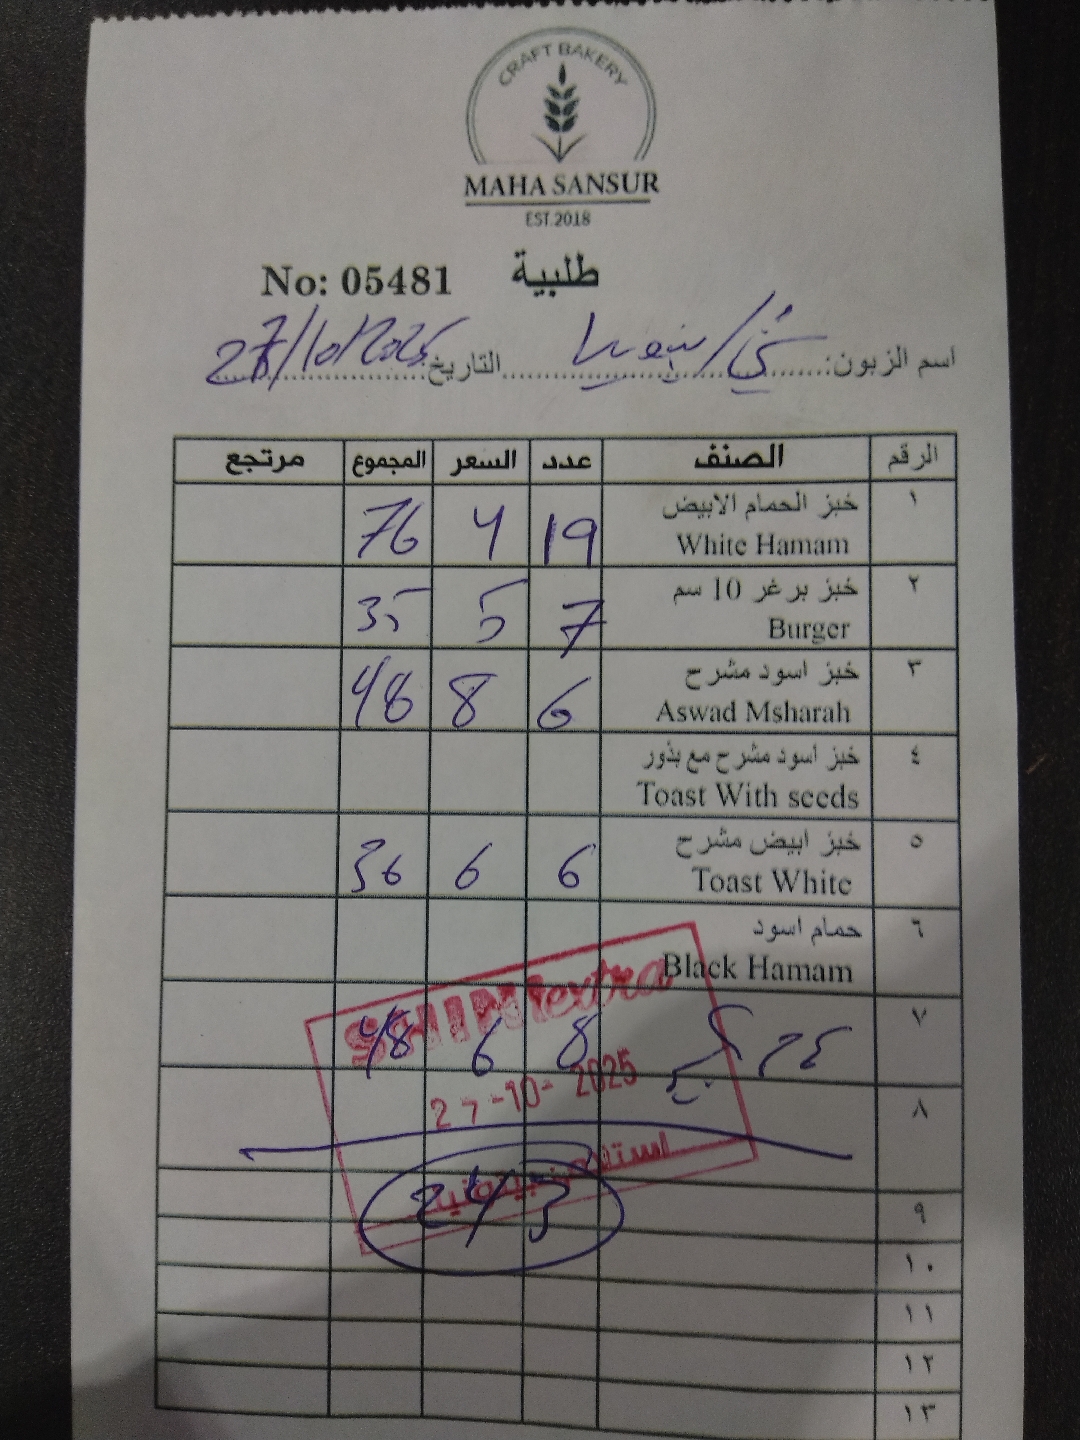 CRAFT BAKERY
MAHA SANSUR
EST.2018
No: 05481 طلبية
اسم الزبون: التاريخ 27/10/2025
الرقم الصنف عدد السعر المجموع مرتجع
١ خبز الحمام الابيض 19 4 76
White Hamam
٢ خبز برغر 10 سم 7 5 35
Burger
٣ خبز اسود مشرح 6 8 48
Aswad Msharah
٤ خبز اسود مشرح مع بذور
Toast With seeds
٥ خبز ابيض مشرح 6 6 36
Toast White
٦ حمام اسود
Black Hamam
٧ 8 6 48
SHINI extra
27-10-2025
٨
243
٩
١٠
١١
١٢
١٣